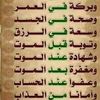 وبركة في العمر
وصحة في الجسد
وسعة في الرزق
وتوبة قبل الموت
وشهادة عند الموت
ومغفرة بعد الموت
وعفوا عند الحساب
وأمانا من العذاب